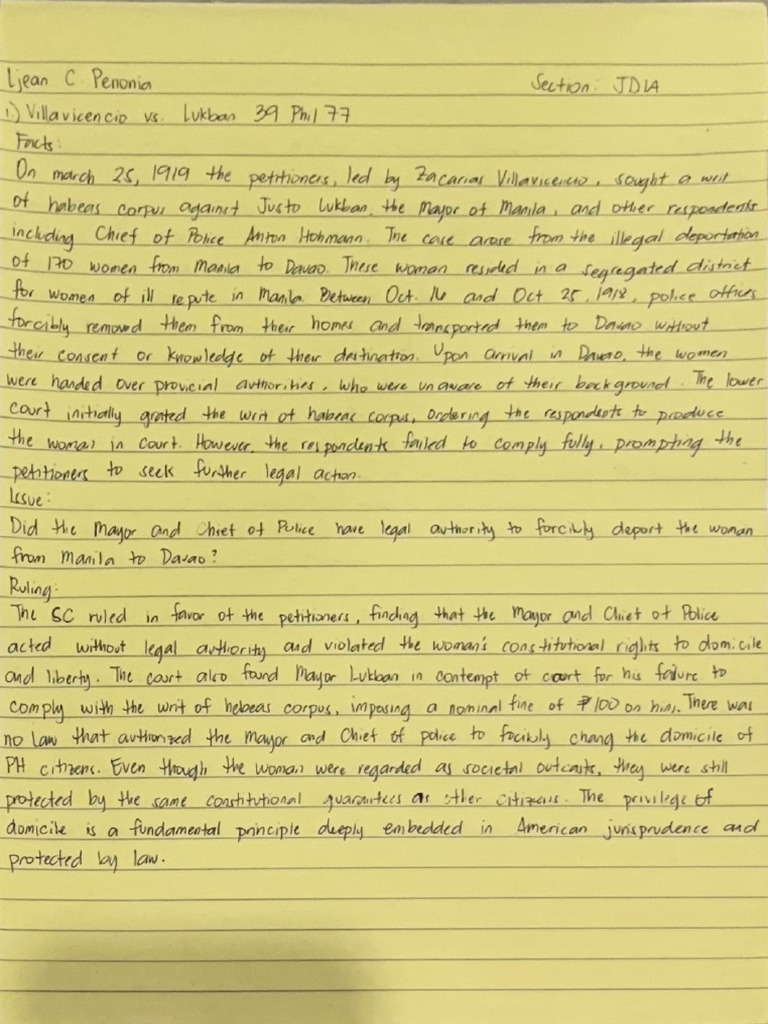 Ljean C. Penonia Section: JD1A
1.) Villavicencio vs. Lukban 39 Phil 77
Facts:
On march 25, 1919 the petitioners, led by Zacarias Villavicencio, sought a writ
of habeas corpus against Justo Lukban, the Mayor of Manila, and other respondents
including Chief of Police Anton Hohmann. The case arose from the illegal deportation
of 170 women from Manila to Davao. These woman resided in a segregated district
for women of ill repute in Manila. Between Oct. 16 and Oct 25, 1918, police officers
forcibly removed them from their homes and transported them to Davao without
their consent or knowledge of their destination. Upon arrival in Davao, the women
were handed over provicial authorities, who were unaware of their background. The lower
court initially grated the writ of habeas corpus, ordering the respondents to produce
the woman in court. However, the respondents failed to comply fully, prompting the
petitioners to seek further legal action.
Issue:
Did the Mayor and Chief of Police have legal authority to forcibly deport the woman
from Manila to Davao?
Ruling:
The SC ruled in favor of the petitioners, finding that the Mayor and Chief of Police
acted without legal authority and violated the woman's constitutional rights to domicile
and liberty. The court also found Mayor Lukban in contempt of court for his failure to
comply with the writ of hebeas corpus, imposing a nominal fine of ₱100 on him. There was
no law that authorized the mayor and Chief of police to focibly chang the domicile of
PH citizens. Even though the woman were regarded as societal outcasts, they were still
protected by the same constitutional guarantees as other citizens. The privilege of
domicile is a fundamental principle deeply embedded in American jurisprudence and
protected by law.